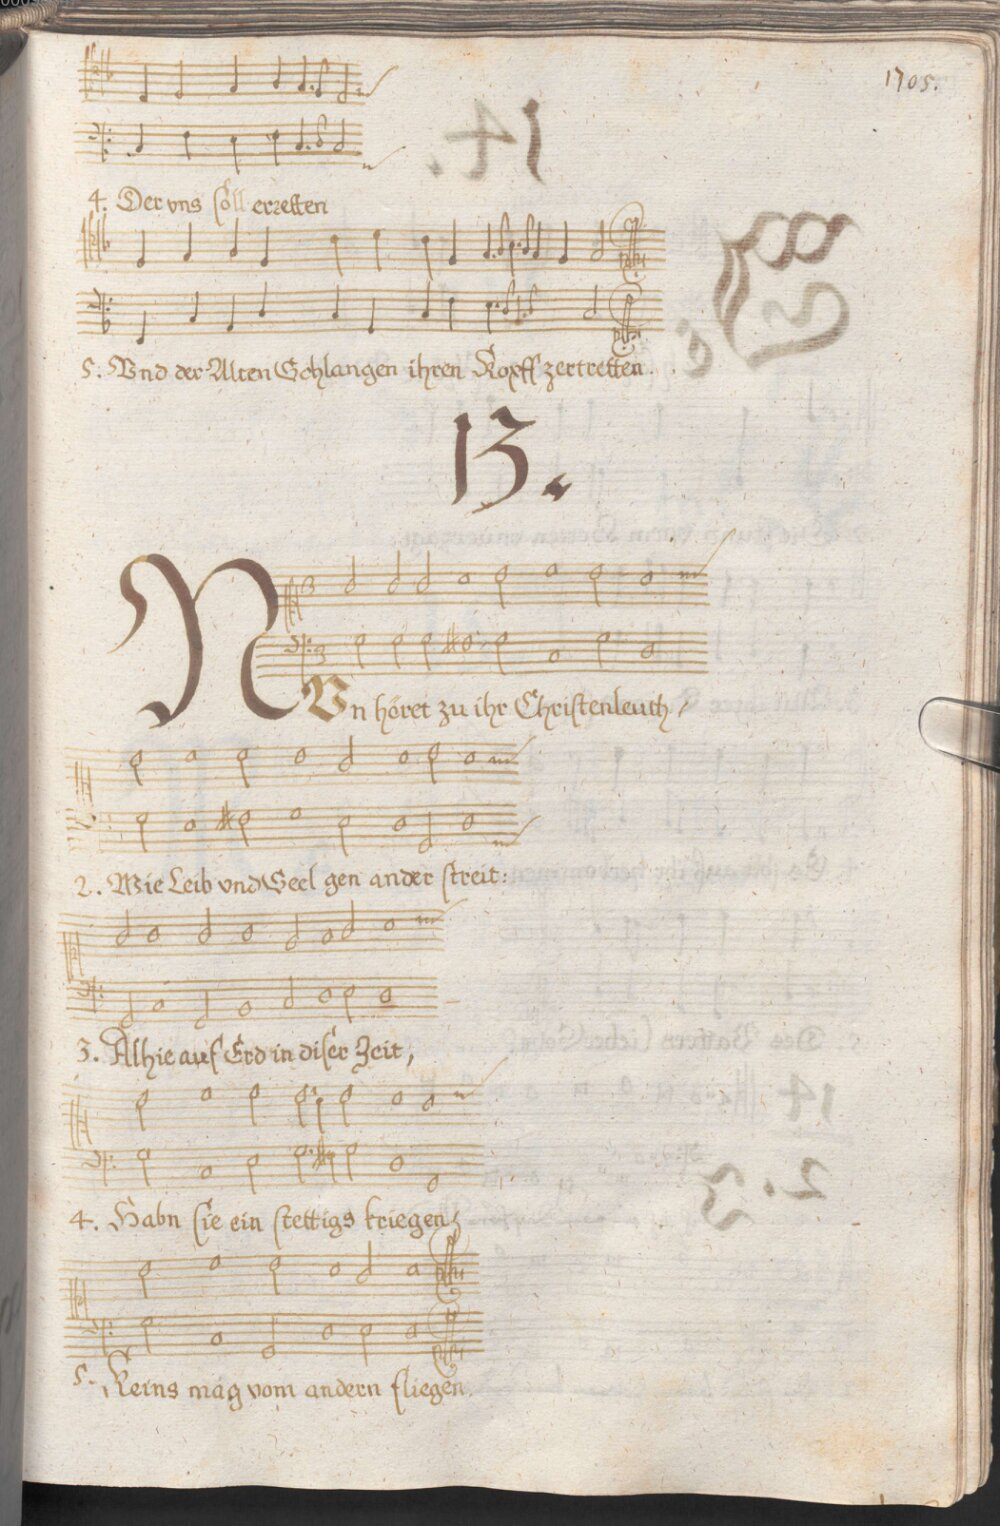 1705.
4. Der vns soll erretten
5. Vnd der Alten Schlangen ihren Kopff zertretten.
13.
NVn höret zu ihr Christenleuth,
2. Wie Leib vnd Seel gen ander streit:
3. Alhie auf Erd in diser Zeit,
4. Habn sie ein stettigs kriegen,
5. Keins mag vom andern fliegen.